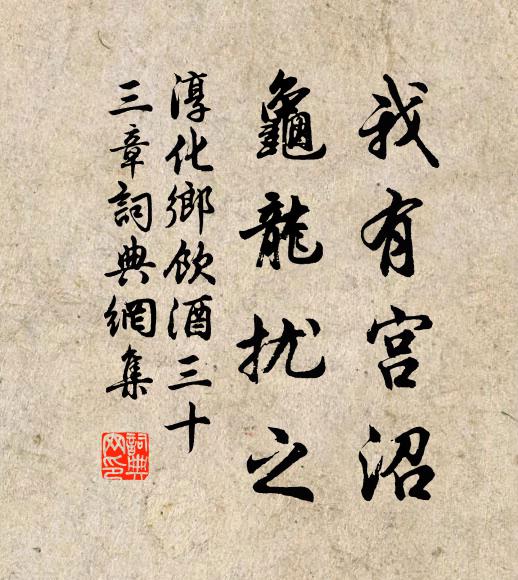 我有宫沼
龜龍扰之
淳化鄉飲酒三十
三章詞典網集
詞典
网印